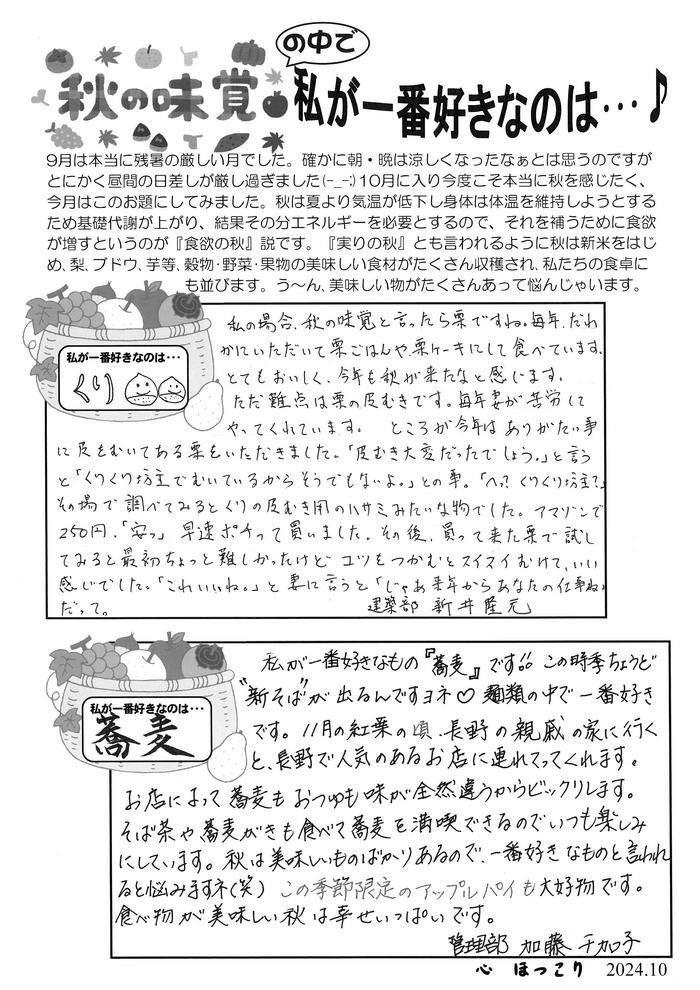 秋の味覚
の中で
私が一番好きなのは…♪
9月は本当に残暑の厳しい月でした。確かに朝・晩は涼しくなったなぁとは思うのですが
とにかく昼間の日差しが厳し過ぎました(-_-;)10月に入り今度こそ本当に秋を感じたく、
今月はこのお題にしてみました。秋は夏より気温が低下し身体は体温を維持しようとする
ため基礎代謝が上がり、結果その分エネルギーを必要とするので、それを補うために食欲
が増すというのが『食欲の秋』説です。『実りの秋』とも言われるように秋は新米をはじ
め、梨、ブドウ、芋等、穀物・野菜・果物の美味しい食材がたくさん収穫され、私たちの食卓に
も並びます。う～ん、美味しい物がたくさんあって悩んじゃいます。
私が一番好きなのは…
くり
私の場合、秋の味覚と言ったら栗ですね。毎年、だれ
かにいただいて栗ごはんや、栗ケーキにして食べています。
とてもおいしく、今年も秋が来たなと感じます。
ただ難点は栗の皮むきです。毎年妻が苦労して
やってくれています。 ところが今年はありがたい事
に皮をむいてある栗をいただきました。「皮むき大変だったでしょう。」と言う
と「くりくり坊主でむいているからそうでもないよ。」との事。「へ？くりくり坊主？」
その場で調べてみるとくりの皮むき用のハサミみたいな物でした。アマゾンで
250円。「安っ」早速ポチって買いました。その後、買って来た栗で試し
てみると最初ちょっと難しかったけどコツをつかむとスイスイむけて、いい
感じでした。「これいいね。」と妻に言うと「じゃあ来年からあなたの仕事ね」
だって。
建築部 新井隆元
私が一番好きなのは…
蕎麦
私が一番好きなもの『蕎麦』です!! この時季ちょうど
“新そば”が出るんですヨネ♡ 麺類の中で一番好き
です。11月の紅葉の頃、長野の親戚の家に行く
と、長野で人気のあるお店に連れてってくれます。
お店によって蕎麦もおつゆも味が全然違うからビックリします。
そば茶や蕎麦がきも食べて蕎麦を満喫できるのでいつも楽しみ
にしています。秋は美味しいものばかりあるので、一番好きなものと言われ
ると悩みますネ(笑) この季節限定のアップルパイも大好物です。
食べ物が美味しい秋は幸せいっぱいです。
管理部 加藤 千加子
心 ほっこり 2024.10